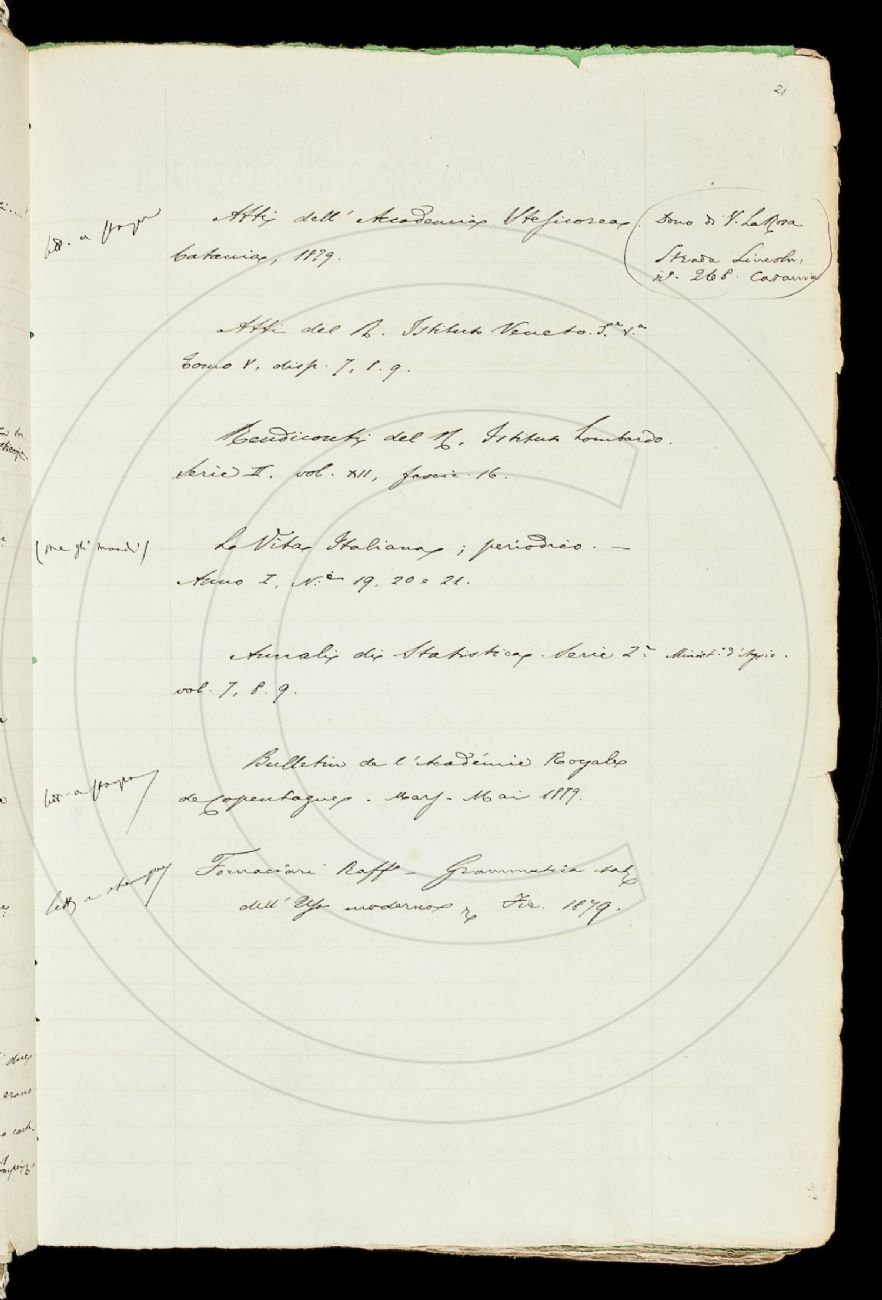 21
lett. a stampa
Atti dell' Accademia Stesicorea.
Catania, 1879.
Dono di V. La Rosa
Strada Lincoln,
n°. 268. Catania
Atti del R. Istituto Veneto. S.e V.a
Tomo V, disp. 7, 8. 9.
Rendiconti del R. Istituto Lombardo.
Serie II. vol. XII, fascic. 16.
La Vita Italiana; periodico. —
Anno I, N.i 19, 20 e 21.
Annali di Statistica. Serie 2.a
Minist.o d'Agric.
vol. 7, 8. 9.
lett. a stampa
Bulletin de l'Académie Royale
de Copenhague. Mars - Mai 1879.
lett. a stampa
Fornaciari Raff - Grammatica ital
dell' Uso moderno, Fir. 1879.